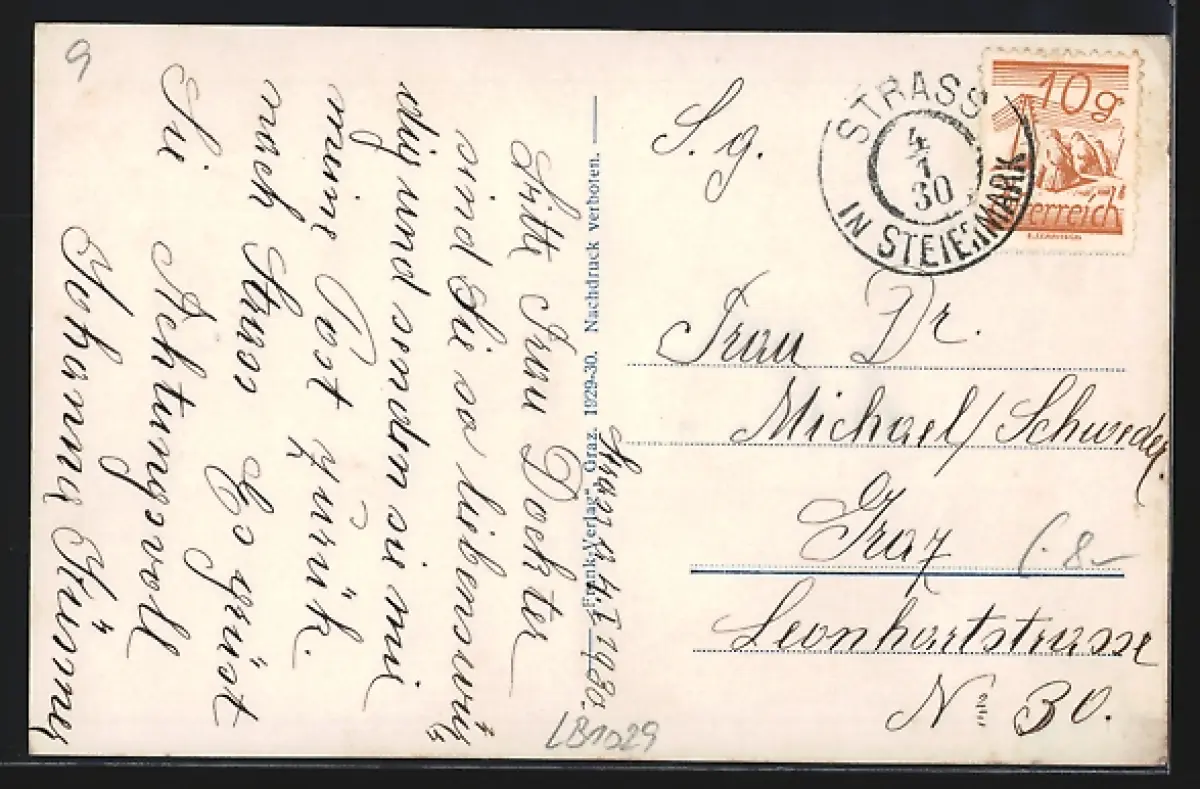 9
Strass a. 4.I 1930.
Bitte Frau Dockter
sind Sie so liebenswür
dig und senden sie mir
meine Post zurük.
nach Strass Es grüst
Sie Achtungsvoll
Johanna
"Frank-Verlag", Graz. 1929-30. Nachdruck verboten.
LB1029
S. g.
STRASS
4
1
30
IN STEIERMARK
10g
Österreich
Frau Dr.
Michael Schweder.
Graz
(.8-
Leonhartstrasse
No 30.